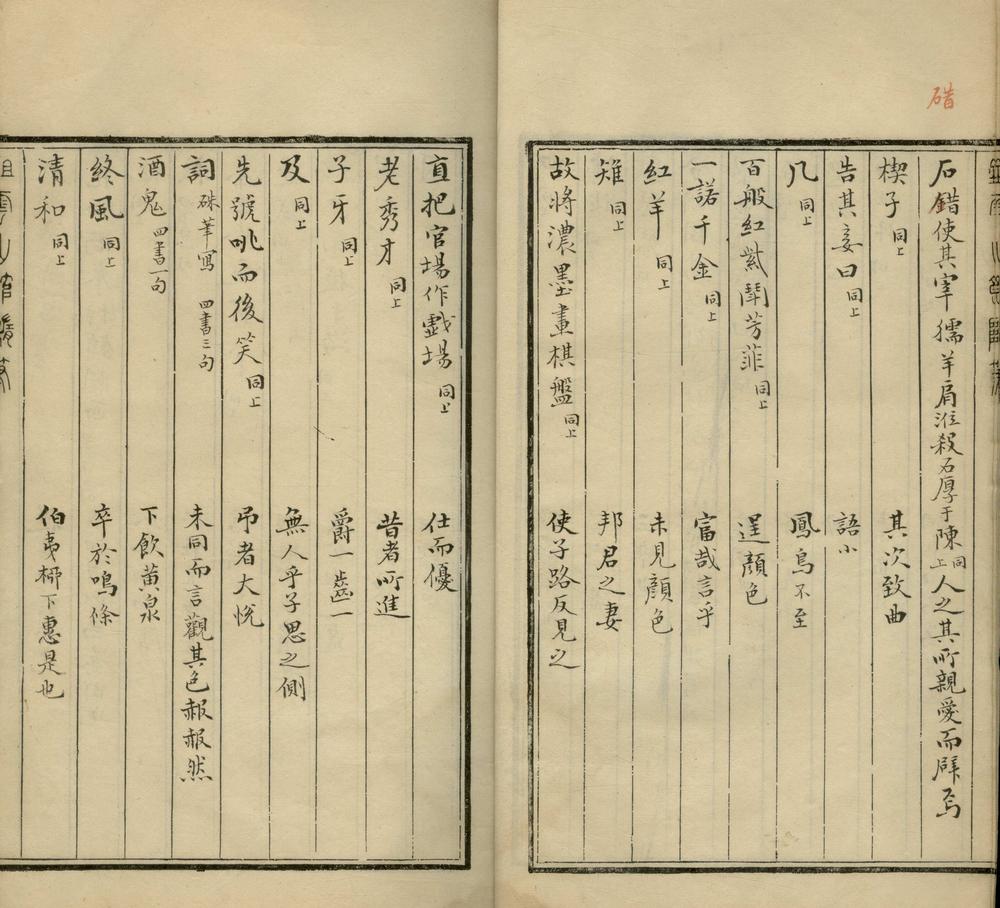 碏
石錯使其宰獳羊肩涖殺石厚于陳同上 人之其所親愛而辟焉
楔子同上 其次致曲
告其妾曰同上 語小
凡同上 鳳鳥不至
百般紅紫鬪芳菲同上 逞顏色
一諾千金同上 富哉言乎
紅羊同上 未見顏色
雉同上 邦君之妻
故將濃墨畫棋盤同上 使子路反見之
直把官場作戲場同上 仕而優
老秀才同上 昔者所進
子牙同上 爵一齒一
及同上 無人乎子思之側
先號咷而後笑同上 弔者大悅
詞硃筆寫 四書三句 未同而言觀其色赧赧然
酒鬼四書一句 下飲黃泉
終風同上 卒於鳴條
清和同上 伯夷柳下惠是也